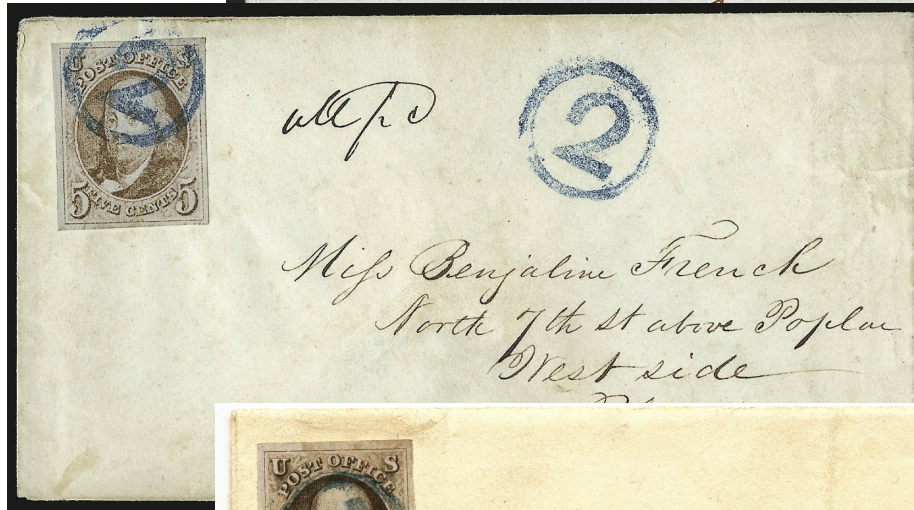 U S
POST OFFICE
5
5 FIVE CENTS 5
all pd
2
Miss Benjaline French
North 7th st above Poplar
West side
U S
POST OFFICE